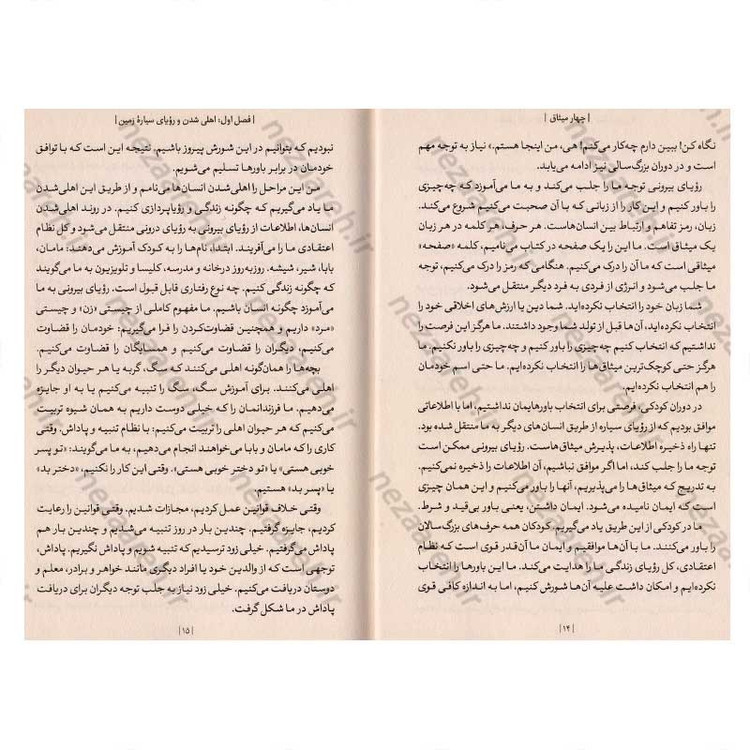 | چهار میثاق |
نگاه کن! ببین دارم چه‌کار می‌کنم! هی، من اینجا هستم.» نیاز به توجه مهم
است و در دوران بزرگ‌سالی نیز ادامه می‌یابد.
رؤیای بیرونی توجه ما را جلب می‌کند و به ما می‌آموزد که چه‌چیزی
را باور کنیم و این کار را از زبانی که با آن صحبت می‌کنیم شروع می‌کند.
زبان، رمز تفاهم و ارتباط بین انسان‌هاست. هر حرف، هر کلمه در هر زبان
یک میثاق است. ما این را یک صفحه در کتاب می‌نامیم، کلمه «صفحه»
میثاقی است که ما آن را درک می‌کنیم. هنگامی که رمز را درک می‌کنیم، توجه
ما جلب می‌شود و انرژی از فردی به فرد دیگر منتقل می‌شود.
شما زبان خود را انتخاب نکرده‌اید. شما دین یا ارزش‌های اخلاقی خود را
انتخاب نکرده‌اید، آن‌ها قبل از تولد شما وجود داشتند. ما هرگز این فرصت را
نداشتیم که انتخاب کنیم چه‌چیزی را باور کنیم و چه‌چیزی را باور نکنیم. ما
هرگز حتی کوچک‌ترین میثاق‌ها را انتخاب نکرده‌ایم. ما حتی اسم خودمان
را هم انتخاب نکرده‌ایم.
در دوران کودکی، فرصتی برای انتخاب باورهایمان نداشتیم، اما با اطلاعاتی
موافق بودیم که از رؤیای سیاره از طریق انسان‌های دیگر به ما منتقل شده بود.
تنها راه ذخیره اطلاعات، پذیرش میثاق‌هاست. رؤیای بیرونی ممکن است
توجه ما را جلب کند، اما اگر موافق نباشیم، آن اطلاعات را ذخیره نمی‌کنیم.
به تدریج که میثاق‌ها را می‌پذیریم، آنها را باور می‌کنیم و این همان چیزی
است که ایمان نامیده می‌شود. ایمان داشتن، یعنی باور بی‌قید و شرط.
ما در کودکی از این طریق یاد می‌گیریم. کودکان همه حرف‌های بزرگ‌سالان
را باور می‌کنند. ما با آن‌ها موافقیم و ایمان ما آن‌قدر قوی است که نظام
اعتقادی، کل رؤیای زندگی ما را هدایت می‌کند. ما این باورها را انتخاب
نکرده‌ایم و امکان داشت علیه آن‌ها شورش کنیم، اما به اندازه کافی قوی
| ۱۴ |
| فصل اول: اهلی شدن و رؤیای سیارهٔ زمین |
نبودیم که بتوانیم در این شورش پیروز باشیم. نتیجه این است که با توافق
خودمان در برابر باورها تسلیم می‌شویم.
من این مراحل را اهلی‌شدن انسان‌ها می‌نامم و از طریق این اهلی‌شدن
ما یاد می‌گیریم که چگونه زندگی و رؤیاپردازی کنیم. در روند اهلی‌شدن
انسان‌ها، اطلاعات از رؤیای بیرونی به رؤیای درونی منتقل می‌شود و کل نظام
اعتقادی ما را می‌آفریند. ابتدا، نام‌ها را به کودک آموزش می‌دهند: مامان،
بابا، شیر، شیشه. روزبه‌روز درخانه و مدرسه، کلیسا و تلویزیون به ما می‌گویند
که چگونه زندگی کنیم. چه نوع رفتاری قابل قبول است. رؤیای بیرونی به ما
می‌آموزد چگونه انسان باشیم. ما مفهوم کاملی از چیستی «زن» و چیستی
«مرد» داریم و همچنین قضاوت‌کردن را فرا می‌گیریم: خودمان را قضاوت
می‌کنیم، دیگران را قضاوت می‌کنیم و همسایگان را قضاوت می‌کنیم.
بچه‌ها را همان‌گونه اهلی می‌کنند که سگ، گربه یا هر حیوان دیگر را
اهلی می‌کنند. برای آموزش سگ، سگ را تنبیه می‌کنیم یا به او جایزه
می‌دهیم. ما فرزندانمان را که خیلی دوست داریم به همان شیوه تربیت
می‌کنیم که هر حیوان اهلی را تربیت می‌کنیم: با نظام تنبیه و پاداش. وقتی
کاری را که مامان و بابا می‌خواهند انجام می‌دهیم، به ما می‌گویند: «تو پسر
خوبی هستی» یا «تو دختر خوبی هستی». وقتی این کار را نکنیم، «دختر بد»
یا «پسر بد» هستیم.
وقتی خلاف قوانین عمل کردیم، مجازات شدیم. وقتی قوانین را رعایت
کردیم، جایزه گرفتیم. چندین بار در روز تنبیه می‌شدیم و چندین بار هم
پاداش می‌گرفتیم. خیلی زود ترسیدیم که تنبیه شویم و پاداش نگیریم. پاداش،
توجهی است که از والدین خود یا افراد دیگری مانند خواهر و برادر، معلم و
دوستان دریافت می‌کنیم. خیلی زود نیاز به جلب توجه دیگران برای دریافت
پاداش در ما شکل گرفت.
| ۱۵ |
nezareh.ir